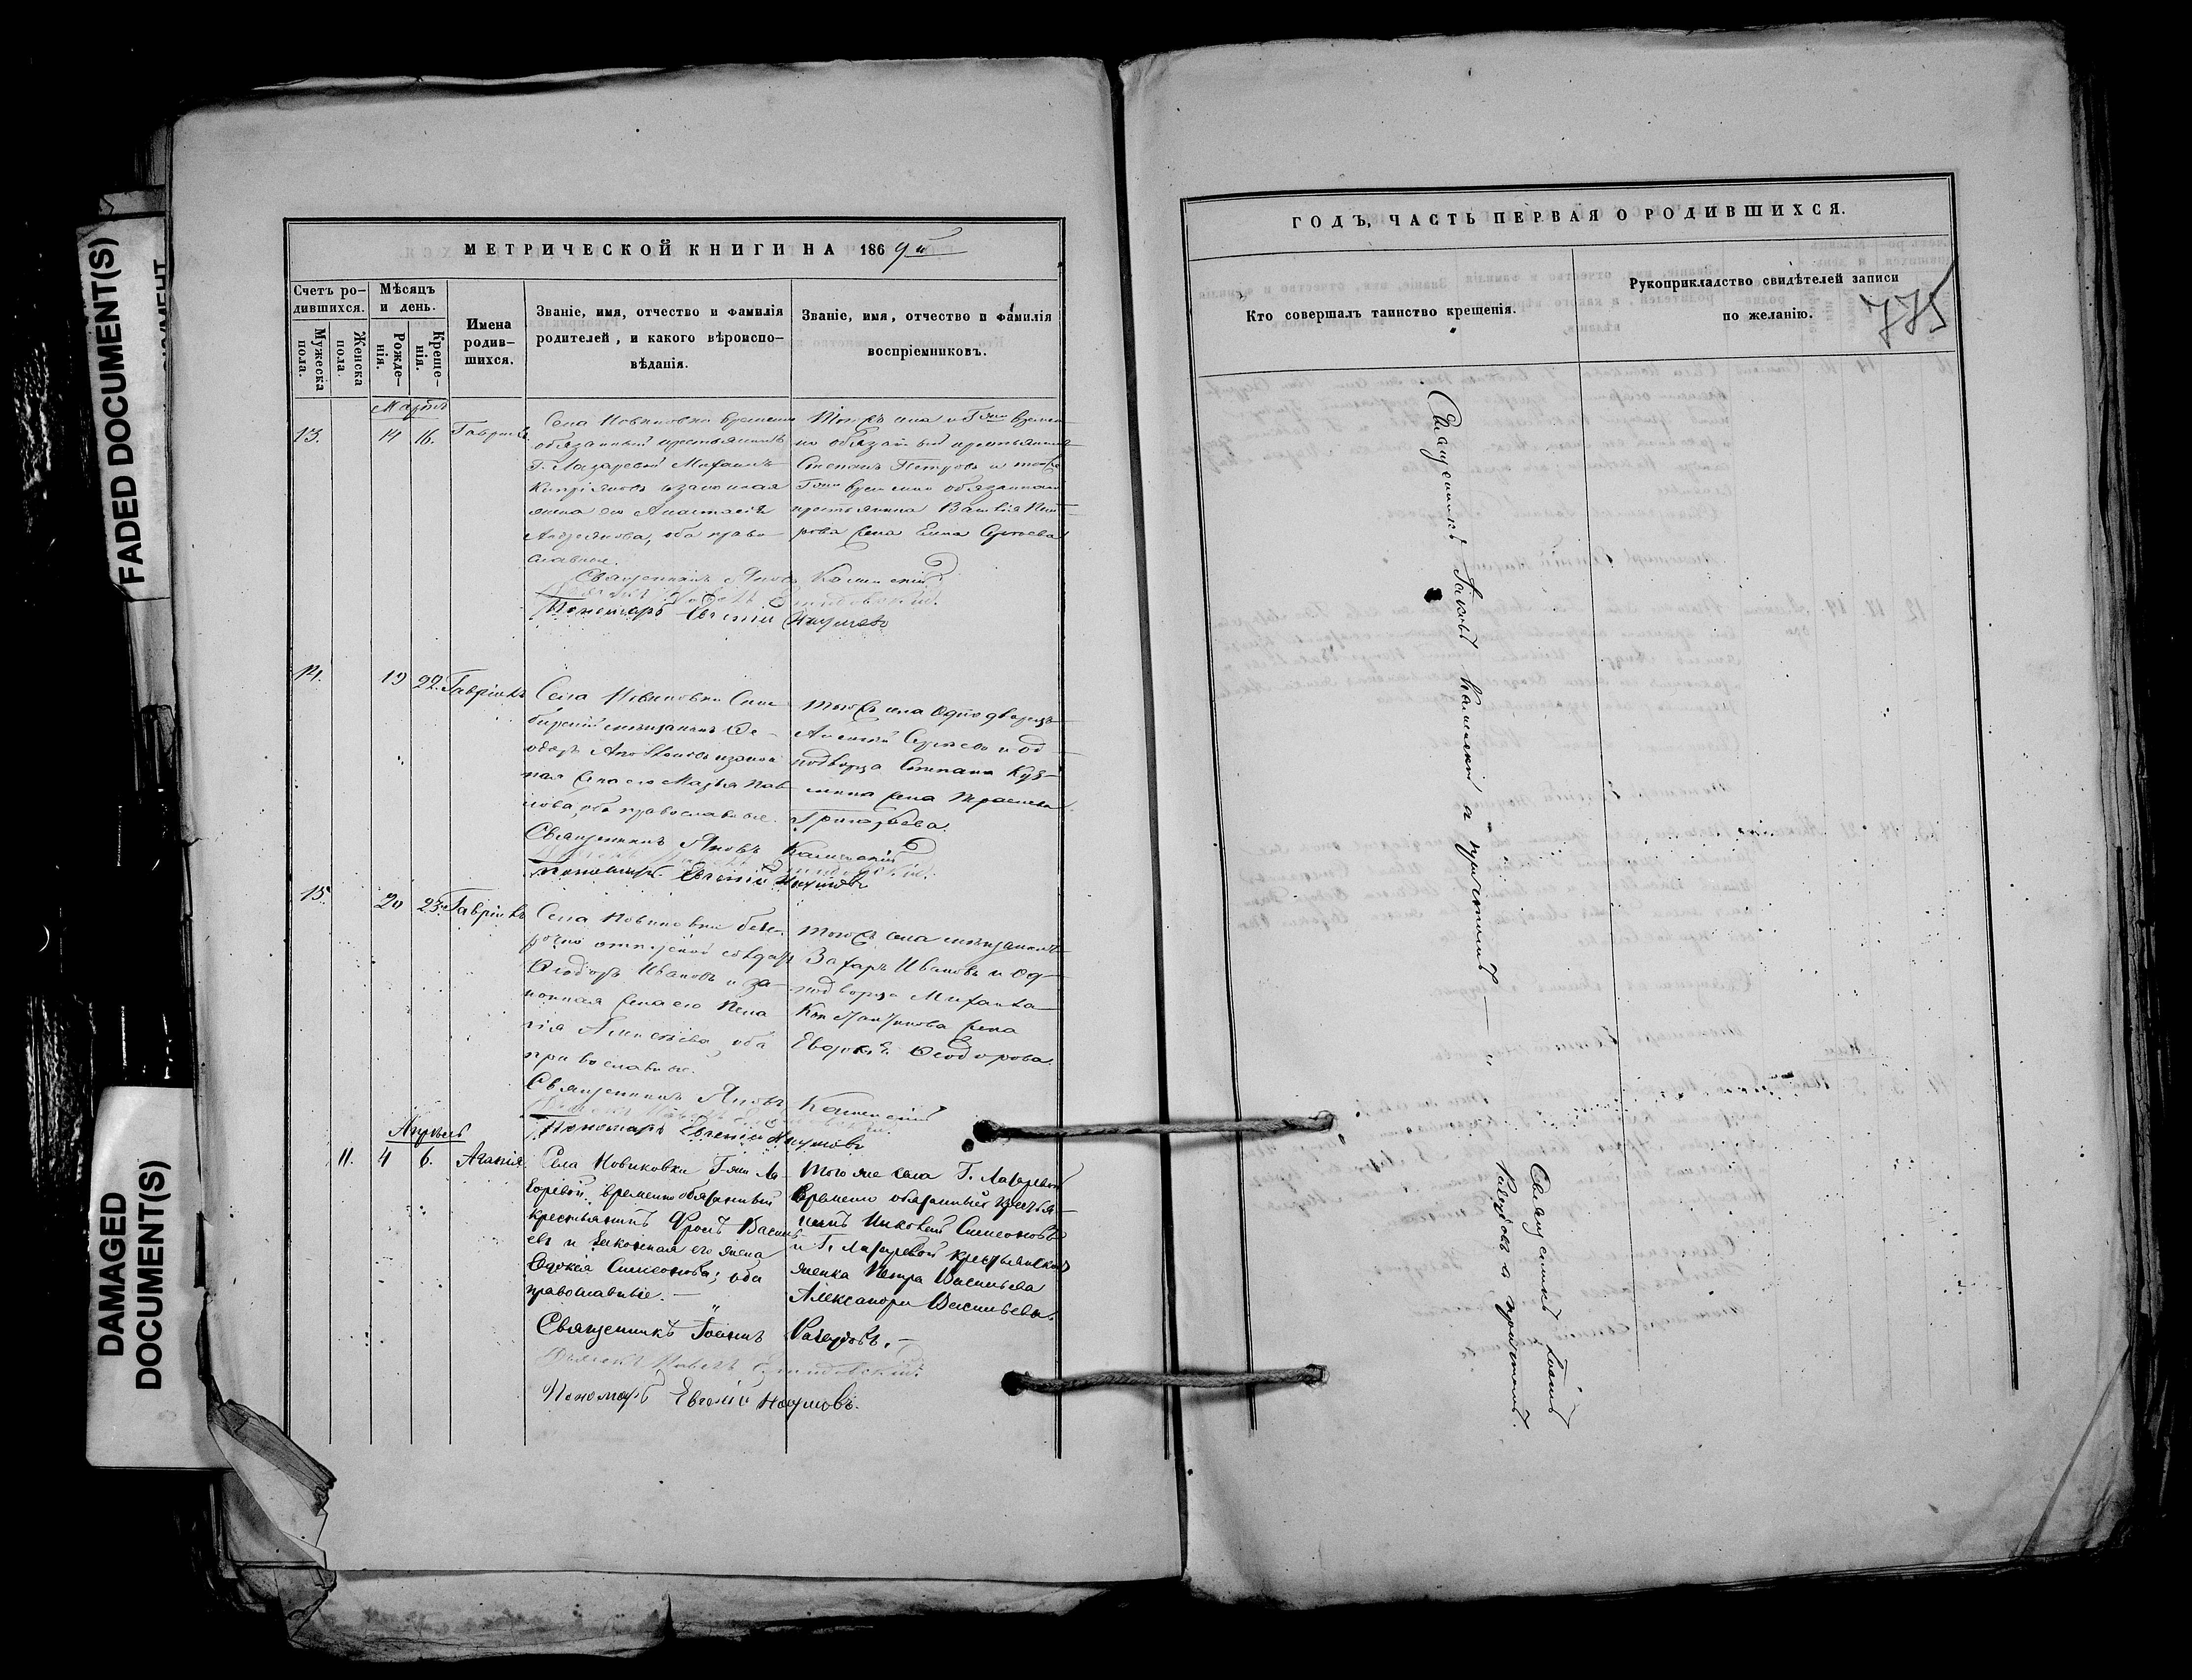 FADED DOCUMENT(S)
DAMAGED
DOCUMENT(S)
МЕТРИЧЕСКОЙ КНИГИ НА 1869й
Счетъ ро-
дившихся.
Мѣсяцъ
и день.
Мужеска
пола.
Женска
пола.
Рожде-
нія.
Креще-
нія.
Имена
родив-
шихся.
Званіе, имя, отчество и фамилія
родителей, и какого вѣроиспо-
вѣданія.
Званіе, имя, отчество и фамилія
воспріемниковъ.
Мартъ
13. 14 16. Гавріилъ
Села Новиковки временно
обязанный крестьянинъ
Г. Лазаревой Михаилъ
Кипріяновъ и законная
жена его Анастасія
Андреянова, оба право-
славные.
Тогожъ села и Гжи времен-
но обязанный крестьянинъ
Степанъ Петровъ и тойже
Гжи временно обязаннаго
крестьянина
жена Елена Сергеева
Священникъ Яковъ Каменскій
Пономарь Евгеній Наумовъ
14. 19 22. Гавріилъ
Села Новиковки Сим-
бирскій мѣщанинъ Ѳе-
одоръ и закон
ная жена его Марья Пав
лова, оба православные.
Тогожъ села Однодворецъ
Алексѣй Сергѣевъ и од-
нодворца Степана Кузь-
мина жена
Григорьева.
Священникъ Яковъ Каменскій
Пономарь Евгеній Наумовъ
15. 20 23. Гавріилъ
Села Новиковки безс-
рочно отпускной солдатъ
Ѳеодоръ Ивановъ и за-
конная жена его Пела
гія Алексѣева, оба
православные.
Тогожъ села мѣщанинъ
Захаръ Ивановъ и од-
нодворца Михаила
Константинова жена
Евдокія Ѳеодорова.
Священникъ Яковъ Каменскій
Пономарь Евгеній Наумовъ
Апрѣль
11. 4 6. Агапія.
Села Новиковки Гжи Ла-
заревой временно обязанный
крестьянинъ Фролъ Василь-
евъ и законная его жена
Евдокія Симеонова; оба
православные. —
Того же села Г. Лазаревой
временно обязанный крестья-
нинъ Николай Симеоновъ
и Г. Лазаревой крестьянская
женка Петра Васильева
Александра Васильева.
Священникъ Іоаннъ
Дьячекъ Павелъ
Пономарь Евгеній Наумовъ.
ГОДЪ, ЧАСТЬ ПЕРВАЯ О РОДИВШИХСЯ.
Кто совершалъ таинство крещенія.
Рукоприкладство свидѣтелей записи
по желанію.
775
Священникъ Іаковъ Каменскій с причтомъ —
Священникъ Іоаннъ
с причтомъ.